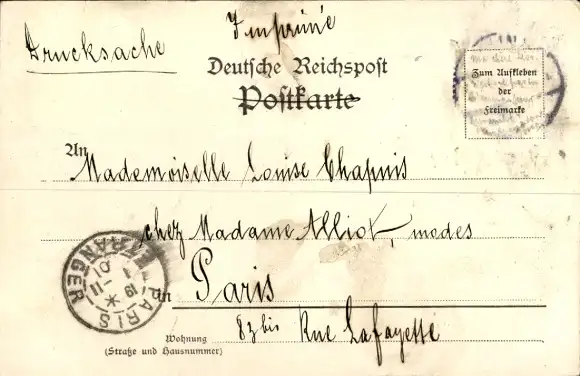 Drucksache
Imprimé
Deutsche Reichspost
Postkarte
Zum Aufkleben
der
Freimarke
An Mademoiselle Louise Chapuis
chez Madame Alliot, modes
in Paris
Wohnung 83 bis Rue Lafayette
(Straße und Hausnummer)
PARIS ETRANGER